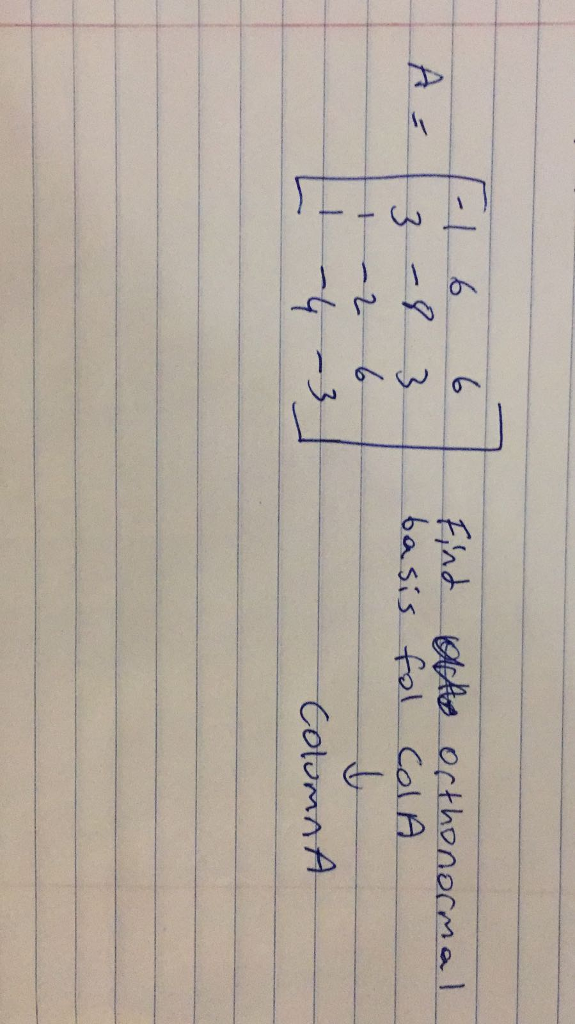 -1 6 6
A = 3 -8 3
1 -2 6
1 -4 -3
Find orthonormal
basis for Col A
↓
Column A